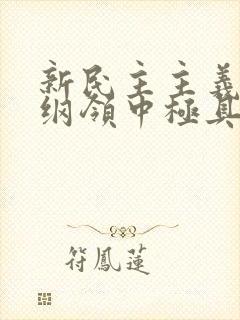 新民主主義
綱領中極具
符鳳蓮